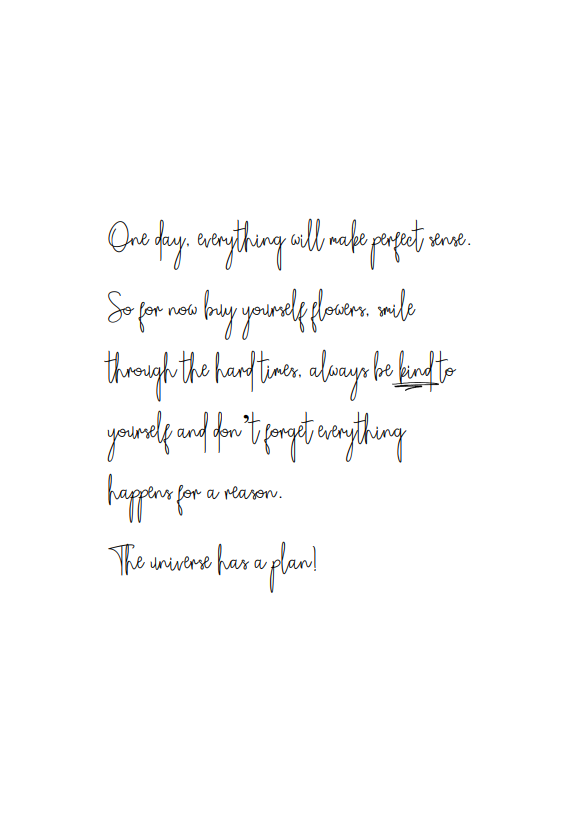 One day, everything will make perfect sense.
So for now buy yourself flowers, smile
through the hard times, always be kind to
yourself and don't forget everything
happens for a reason.
The universe has a plan!